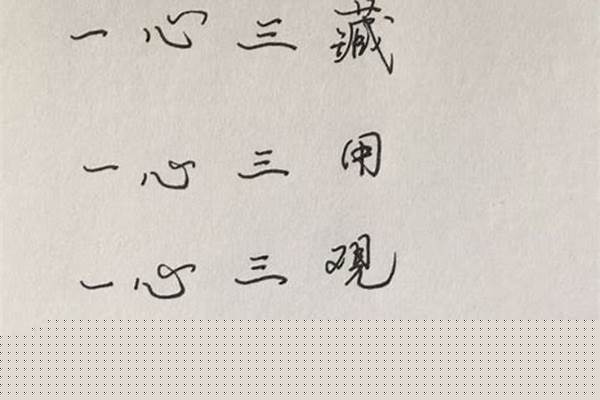 一心三藏
一心三用
一心三观